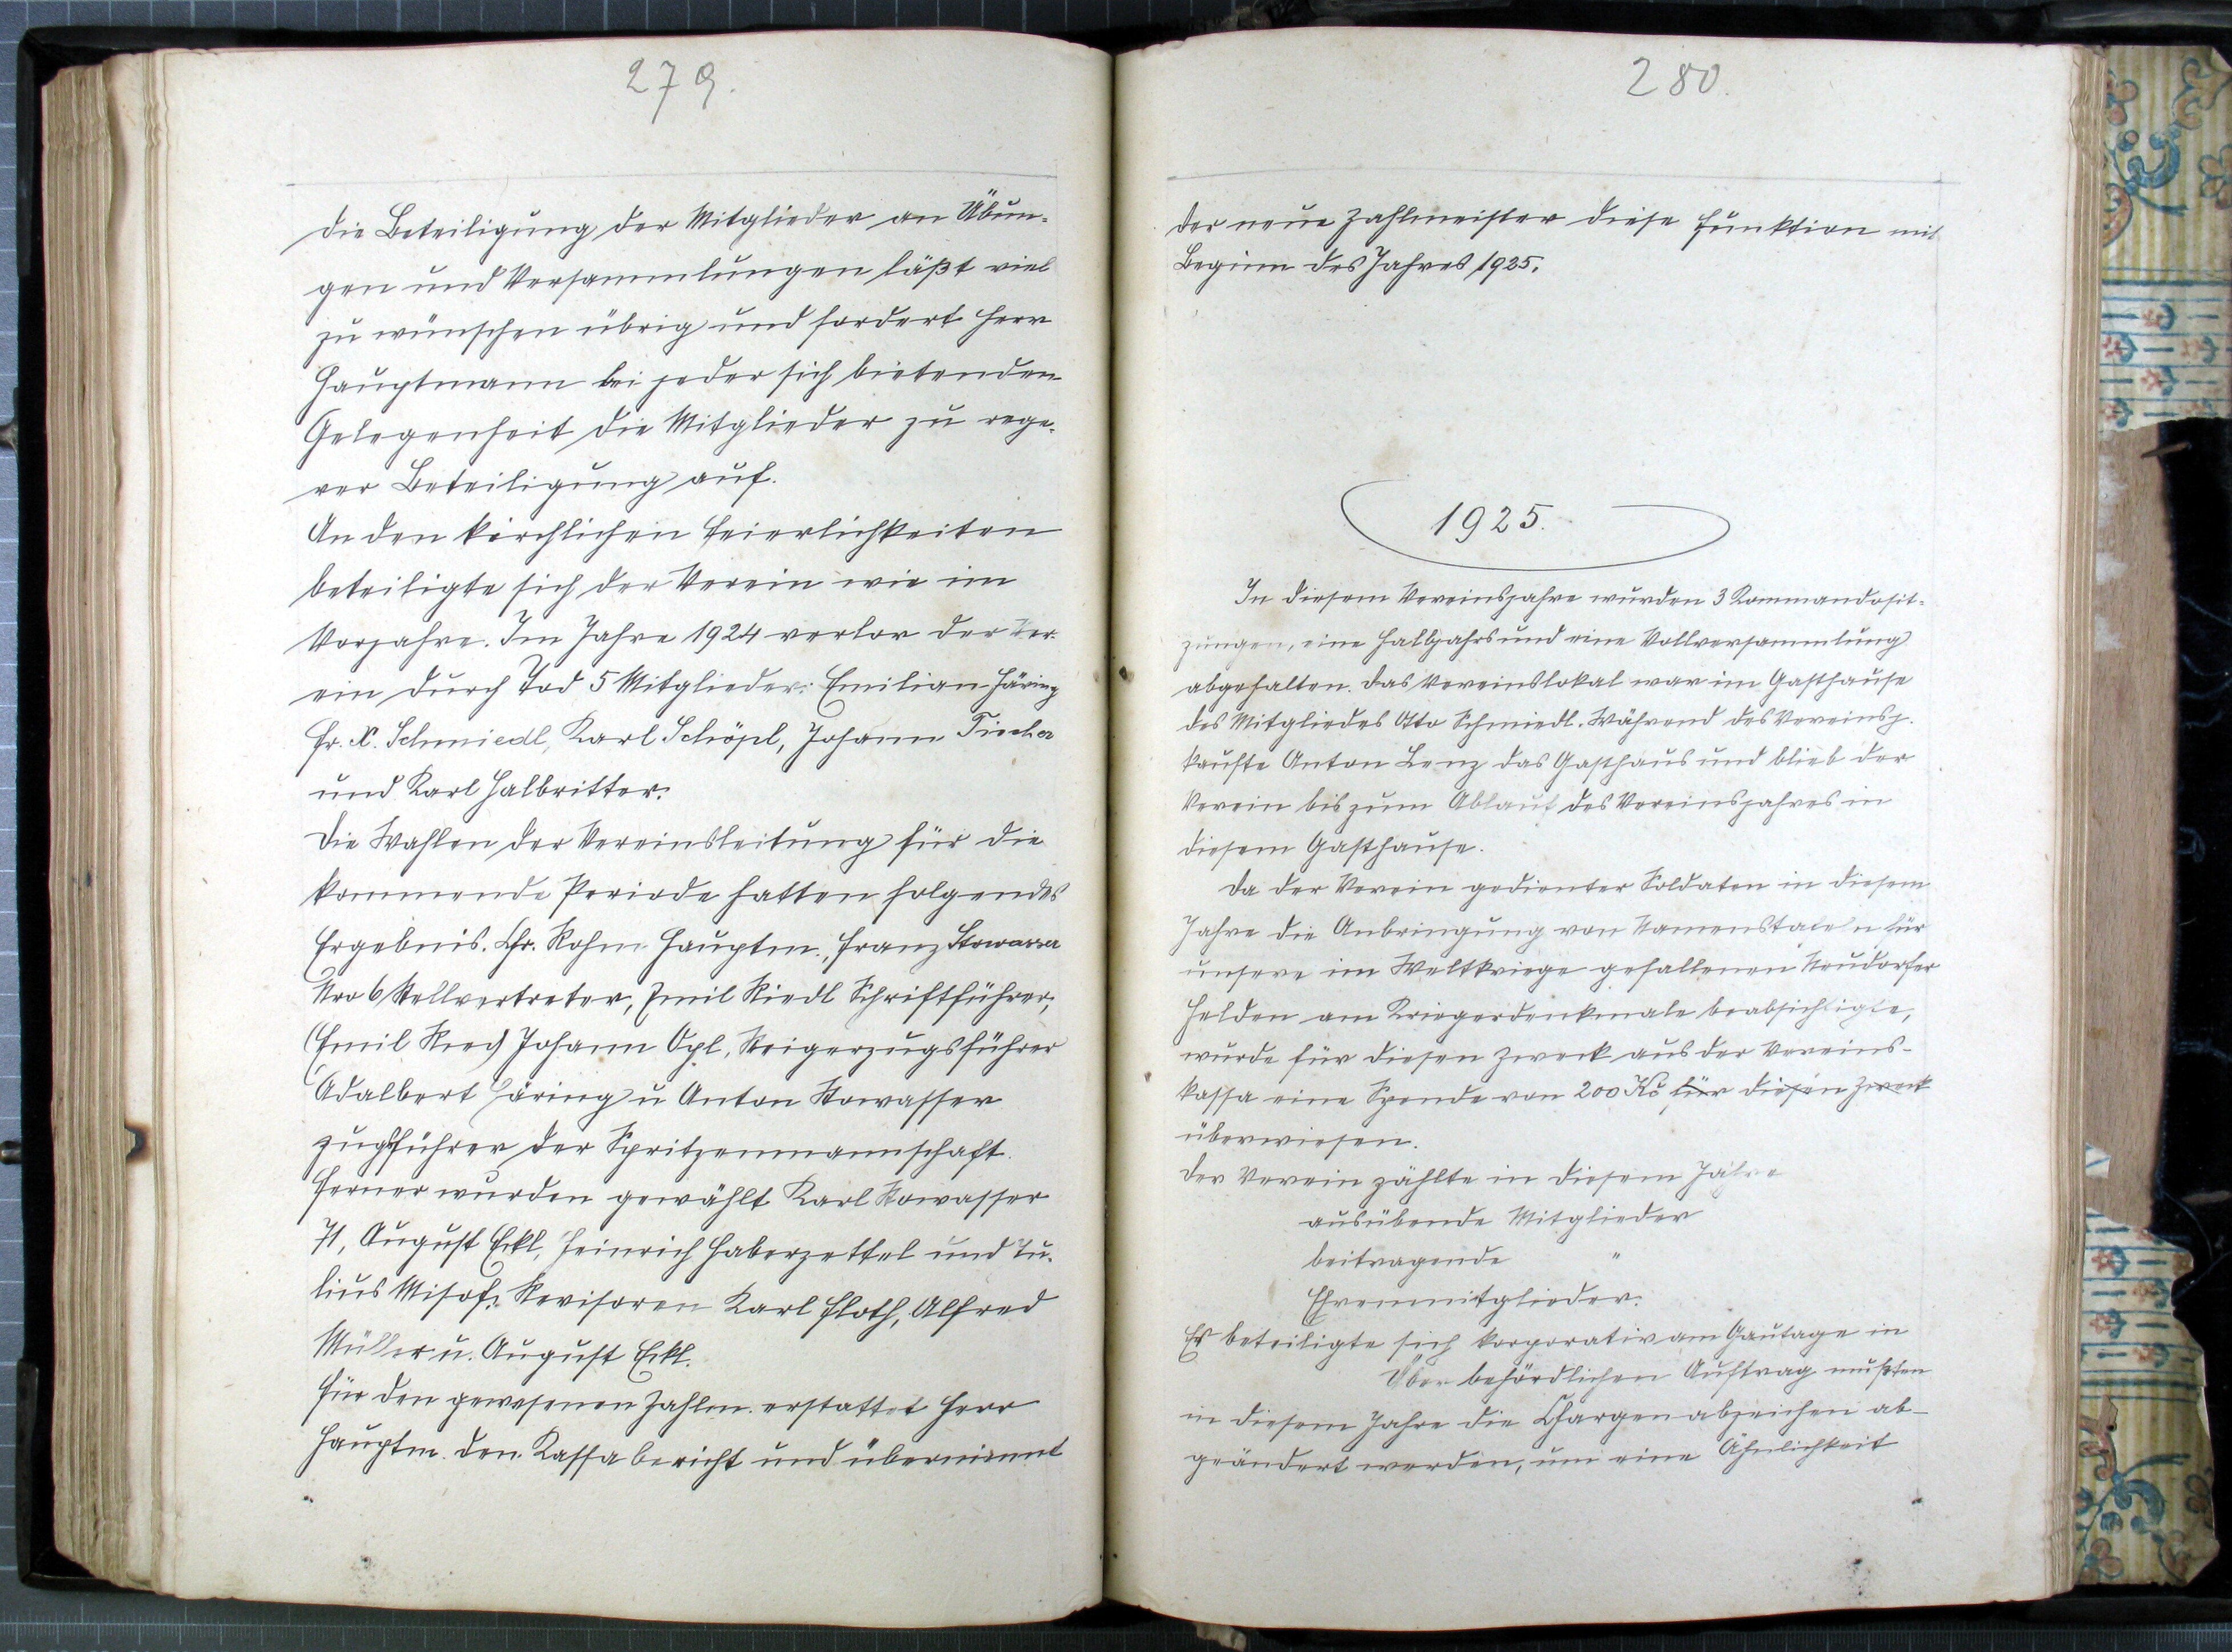 279.
die Beteiligung der Mitglieder an Übun-
gen und Versammlungen läßt viel
zu wünschen übrig und fordert Herr
Hauptmann bei jeder sich bietenden
Gelegenheit die Mitglieder zu rege-
rer Beteiligung auf.
An den kirchlichen Feierlichkeiten
beteiligte sich der Verein wie im
Vorjahre. Im Jahre 1924 verlor der Ver-
ein durch Tod 5 Mitglieder: Emilian Häring
Fr. X. Schmiedl, Karl Schöpl, Johann
und Karl Halbritter.
Die Wahlen der Vereinsleitung für die
kommende Periode hatten folgendes
Ergebnis. Chr. Rohm Hauptm., Franz Stowasser
Nro 6 Stellvertreter, Emil Riedl Schriftführer,
(Emil Ried) Johann Opl, Steigerzugsführer
Adalbert Häring u Anton Stowasser
Zugsführer der Spritzenmannschaft.
Ferner wurden gewählt Karl Stowasser
71, August Eckl, Heinrich Haberzettel und Ju-
lius Misof. Revisoren Karl Floth, Alfred
Müller u. August Eckl.
Für den gewesenen Zahlm. erstattet Herr
Hauptm. den Kassabericht und übernimmt
280.
der neue Zahlmeister diese Funktion mit
Beginn des Jahres 1925.
1925.
In diesem Vereinsjahre wurden 3 Kommandosit-
zungen, eine Halbjahrs und eine Vollversammlung
abgehalten. Das Vereinslokal war im Gasthause
des Mitgliedes Otto Schmiedl. Während des Vereinsj.
kaufte Anton Lenz das Gasthaus und blieb der
Verein bis zum Ablauf des Vereinsjahres in
diesem Gasthause.
Da der Verein gedienter Soldaten in diesem
Jahre die Anbringung von Namenstafeln für
unsere im Weltkriege gefallenen Neudorfer
Helden am Kriegerdenkmale beabsichtigte,
wurde für diesen Zweck aus der Vereins-
kassa eine Spende von 200 Kč für diesen Zweck
überwiesen.
Der Verein zählte in diesem Jahre
ausübende Mitglieder
beitragende "
Ehrenmitglieder.
Er beteiligte sich korporativ am Gautage in
Über behördlichen Auftrag mußten
in diesem Jahre die Chargenabzeichen ab-
geändert werden, um eine Ähnlichkeit